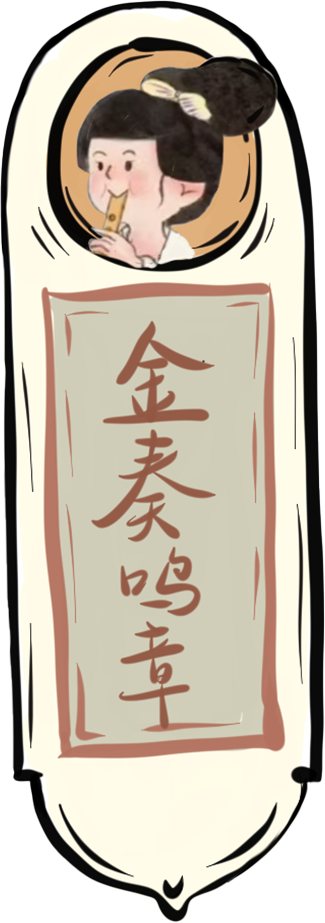 金奏鸣章